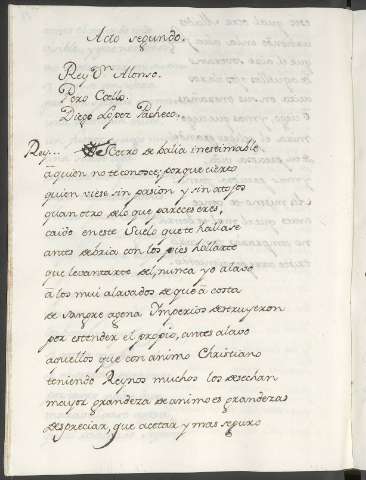 Acto segundo.
Rey Dn Alonso.
Pero Coello.
Diego Lopez Pacheco.
Rey... Cetro de balia inestimable
a quien no te conoce; porque cierto
quien viese sin pasión y sin atojos
quan otro de lo que pareces eres,
caido en este Suelo que te hallase
antes debria con los pies hollarte
que levantarte del, nunca yo alavo
à los mui alavados de que à costa
de sangre agena Imperios destruyeron
por estender el propio, antes alavo
aquellos que con animo Christiano
teniendo Reynos muchos los desechan
mayor grandeza de animo es grandezas
despreciar, que acetar y mas seguro